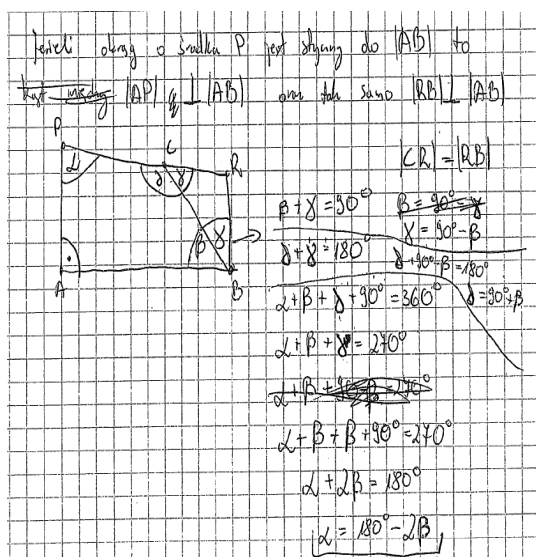 Jeżeli okrąg o środku P jest styczny do |AB| to
|AP| ⊥ |AB| oraz tak samo |RB| ⊥ |AB|
P
C
R
α
δ γ
β γ
A
B
|CR| = |RB|
β + γ = 90°
β = 90° = γ
γ = 90° - β
δ + γ = 180°
δ + 90° - β = 180°
δ = 90° + β
α + β + δ + 90° = 360°
α + β + δ = 270°
α + β + 90 - β = 270°
α + β + β + 90° = 270°
α + 2β = 180°
α = 180° - 2β